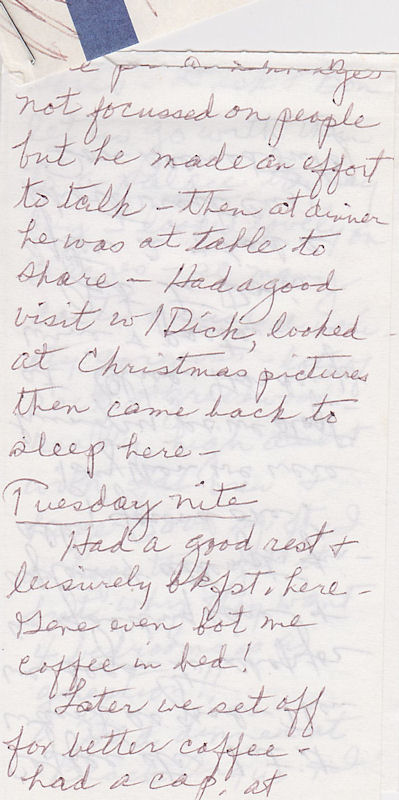 not focussed on people
but he made an effort
to talk - then at dinner
he was at table to
share - Had a good
visit w/Dick, looked
at Christmas pictures
then came back to
sleep here -
Tuesday nite
Had a good rest +
leisurely bkfst. here -
Gene even bot me
coffee in bed!
Later we set off
for better coffee -
had a cap. at